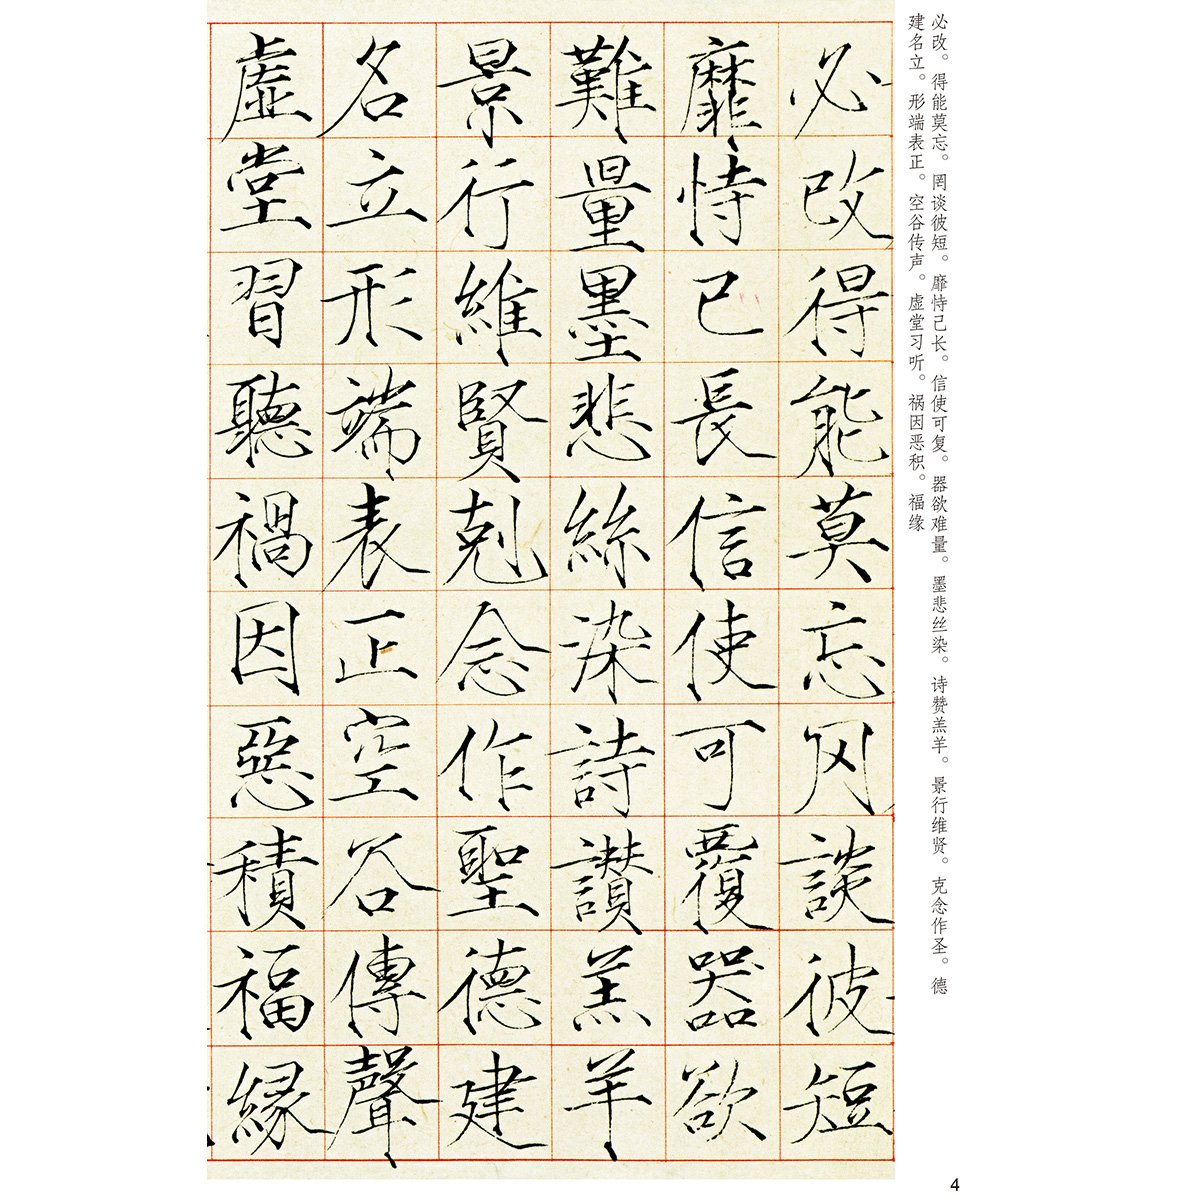 必改。得能莫忘。罔谈彼短。靡恃己长。信使可复。器欲难量。墨悲丝染。诗赞羔羊。景行维贤。克念作圣。德
建名立。形端表正。空谷传声。虚堂习听。祸因恶积。福缘
必改得能莫忘罔談彼短
靡恃己長信使可覆器欲
難量墨悲絲染詩讃羔羊
景行維賢剋念作聖德建
名立形端表正空谷傳聲
虛堂習聽禍因惡積福緣
4